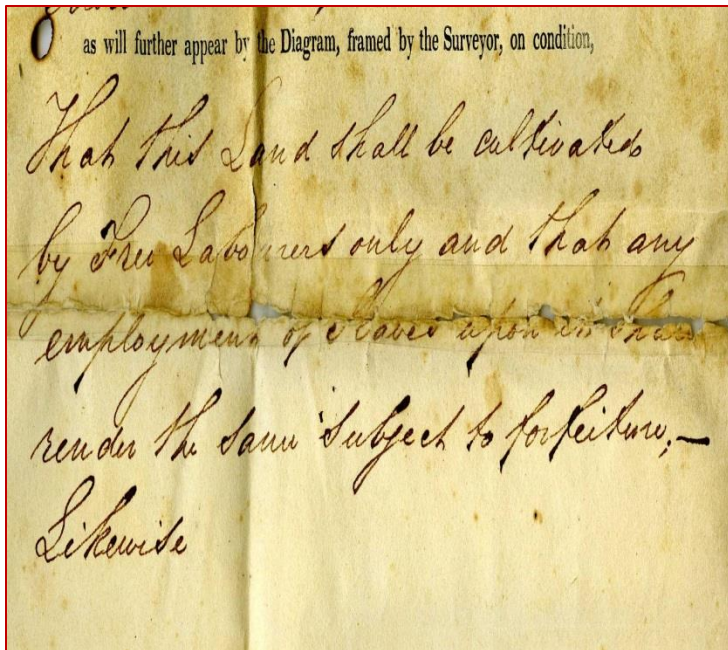 as will further appear by the Diagram, framed by the Surveyor, on condition,
That this Land shall be cultivated
by Free Labourers only and that any
employment of Slaves upon it shall
render the same subject to forfeiture,—
Likewise